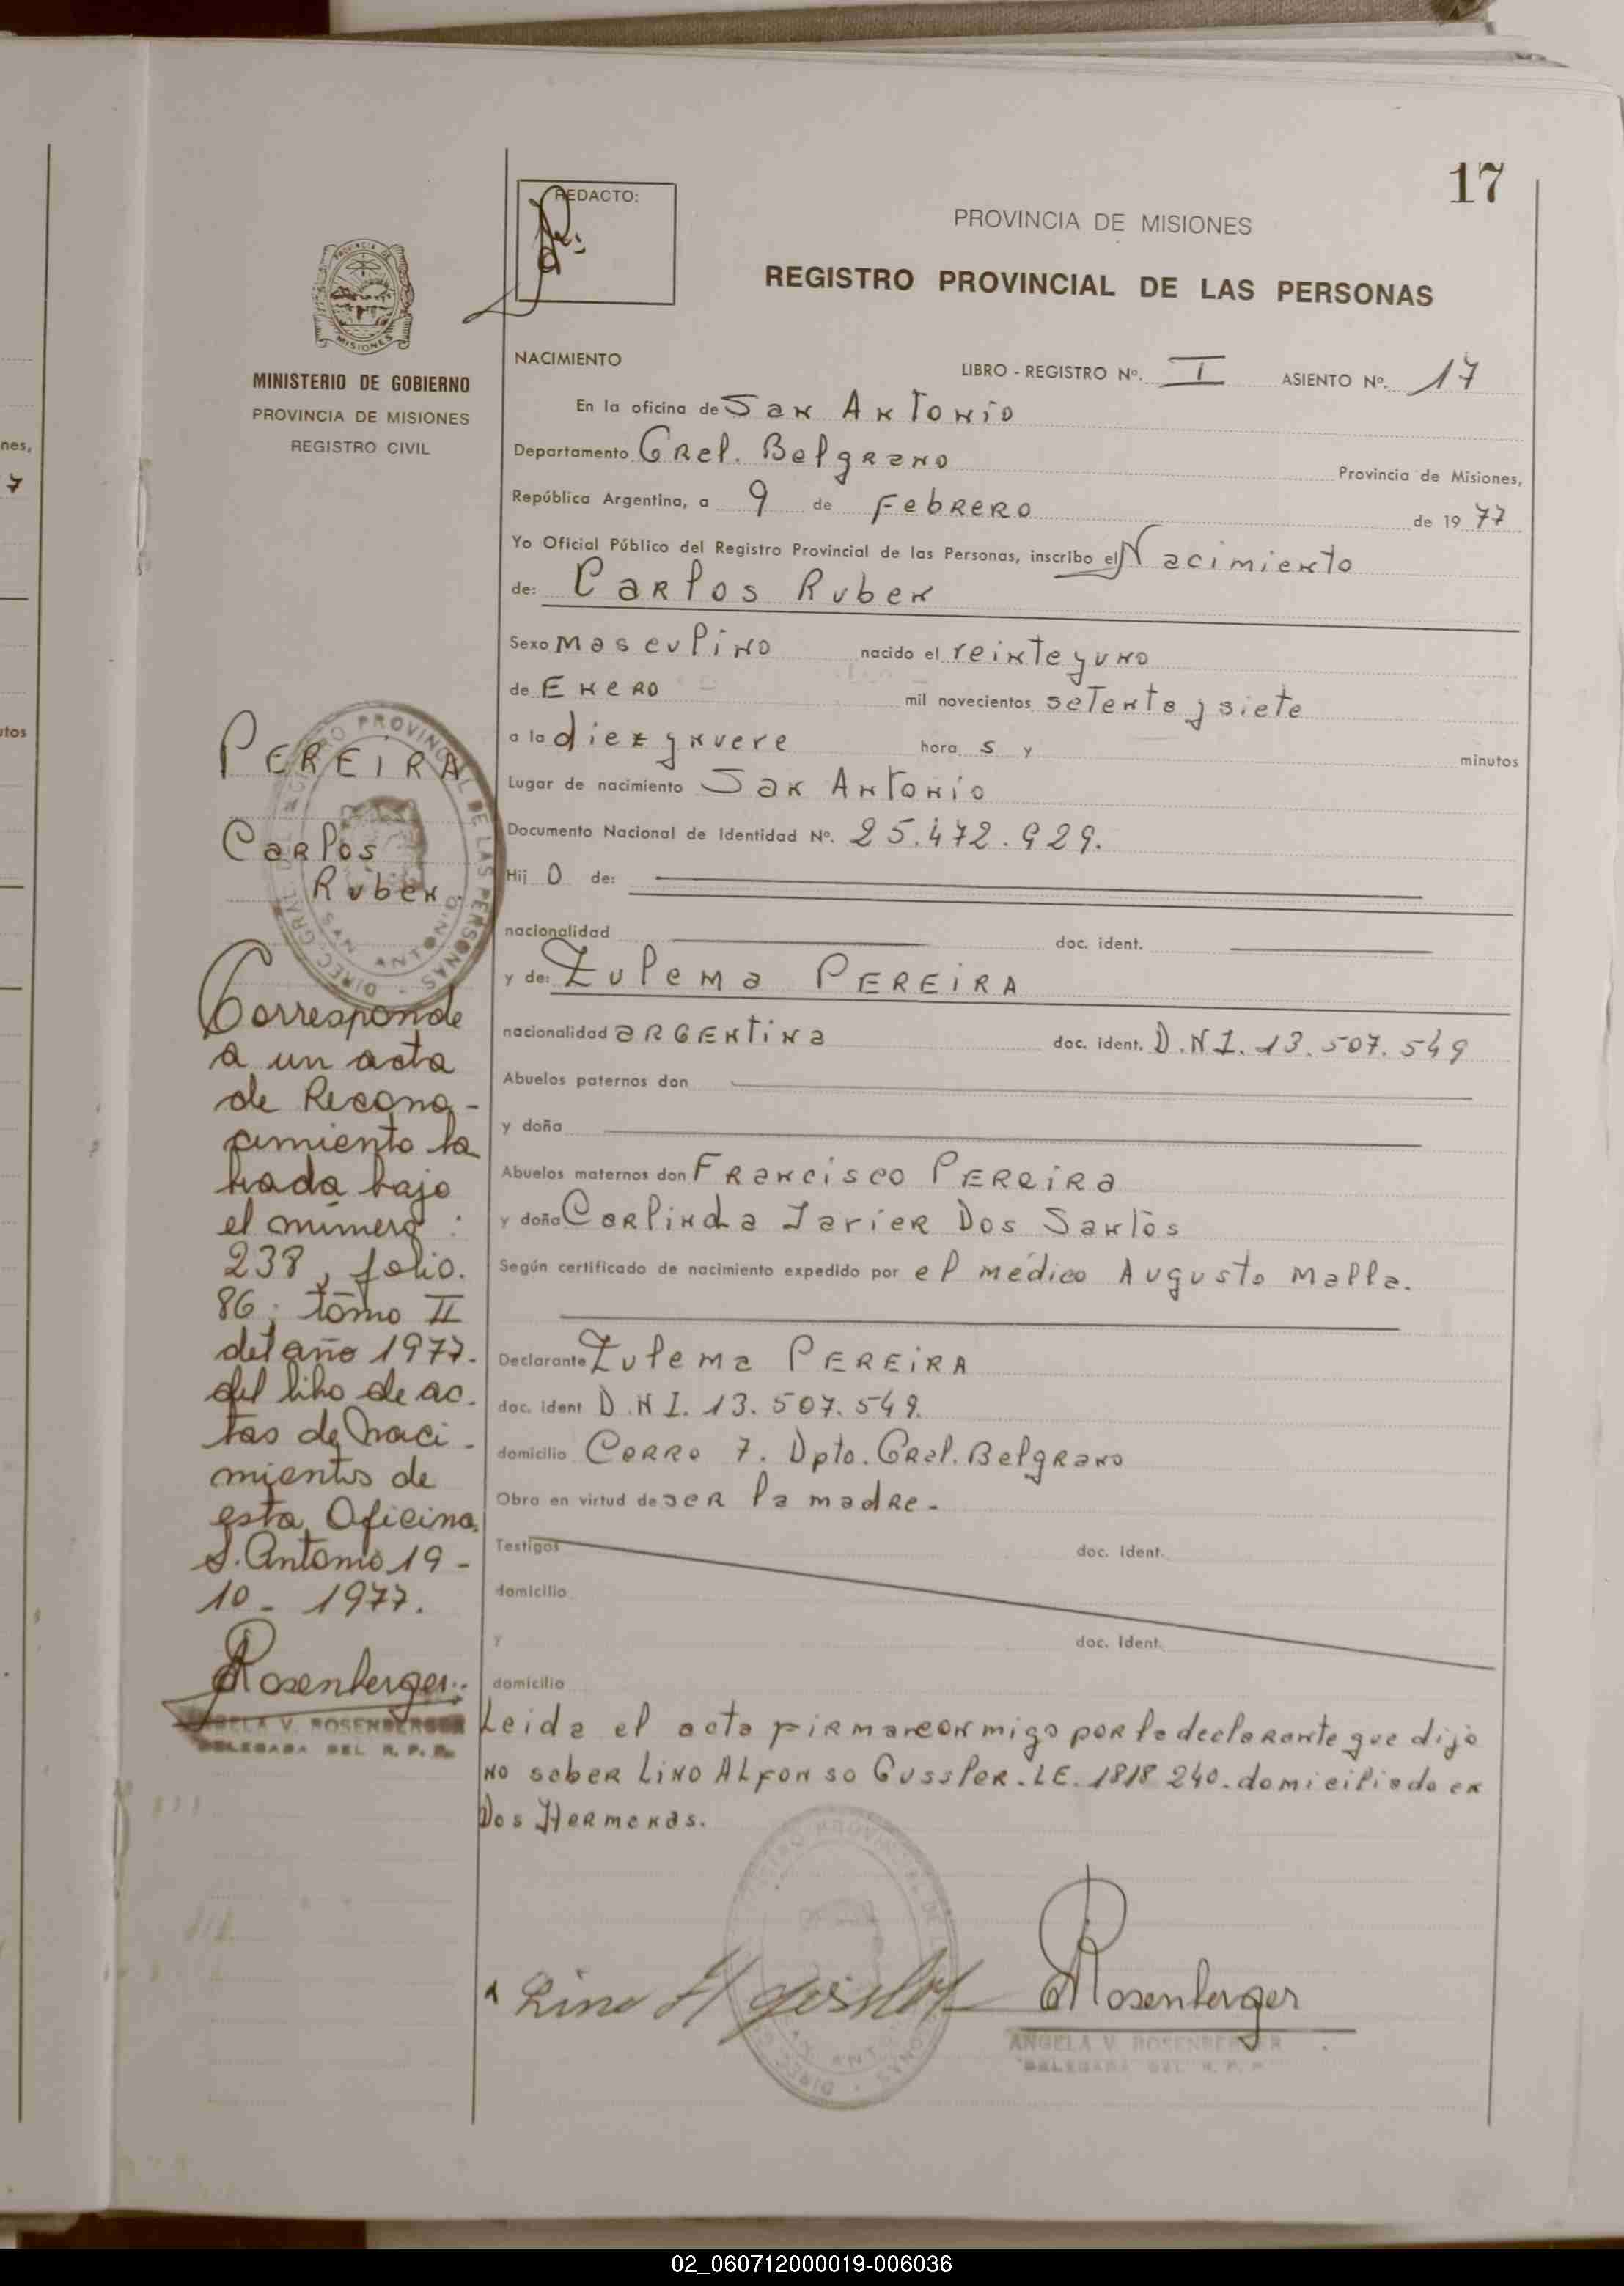 nes,
7
utos
17
REDACTO:
PROVINCIA DE MISIONES
REGISTRO PROVINCIAL DE LAS PERSONAS
MISIONES
MINISTERIO DE GOBIERNO
PROVINCIA DE MISIONES
REGISTRO CIVIL
NACIMIENTO LIBRO - REGISTRO Nº. I ASIENTO Nº. 17
En la oficina de San Antonio
Departamento Gral. Belgrano Provincia de Misiones,
República Argentina, a 9 de Febrero de 19 77
Yo Oficial Público del Registro Provincial de las Personas, inscribo el Nacimiento
de: Carlos Ruben
Sexo masculino nacido el veinteyuno
de Enero mil novecientos setenta y siete
a la diez y nueve hora s y minutos
Lugar de nacimiento San Antonio
Documento Nacional de Identidad Nº. 25.472.929.
Hij o de:
nacionalidad doc. ident.
y de: Zulema PEREIRA
nacionalidad argentina doc. ident. D.N.I. 13.507.549
Abuelos paternos don
y doña
Abuelos maternos don Francisco PEREIRA
y doña Carlinda Javier Dos Santos
Según certificado de nacimiento expedido por el médico Augusto Malla.
Declarante Zulema PEREIRA
doc. ident D.N.I. 13.507.549.
domicilio Cerro 7. Dpto. Gral. Belgrano
Obra en virtud de ser la madre.
Testigos doc. Ident.
domicilio
y doc. Ident.
domicilio
Leida el acta firman conmigo por la declarante que dijo
no saber Lino Alfonso Gussler. LE. 1818 240. domiciliado en
Dos Hermanas.
PEREIRA
Carlos
Ruben
DIREC. GRAL. DEL REGISTRO PROVINCIAL DE LAS PERSONAS
SAN ANTONIO
Corresponde
a un acta
de Recono-
cimiento la
brada bajo
el número :
238, folio.
86, tomo II
del año 1977.
del libro de ac.
tas de naci-
mientos de
esta Oficina.
S. Antonio 19-
10 - 1977.
Rosenberger
ANGELA V. ROSENBERGER
DELEGADA DEL R. P. P.
Lino A
Rosenberger
ANGELA V. ROSENBERGER
DELEGADA DEL R. P. P.
02_060712000019-006036